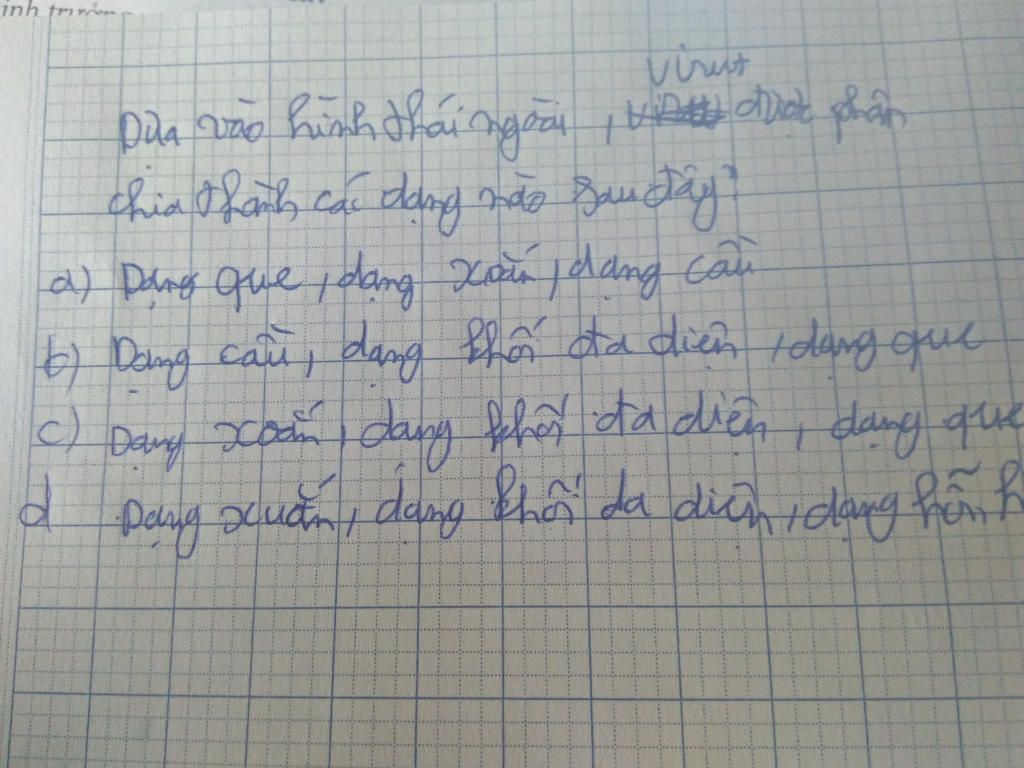 virut
Dựa vào hình thái ngoài, được phân
chia thành các dạng nào sau đây?
a) Dạng que, dạng xoắn, dạng cầu
b) Dạng cầu, dạng khối đa diện, dạng que
c) Dạng xoắn, dạng khối đa diện, dạng que
d Dạng xuắn, dạng khối đa diện, dạng hỗn h